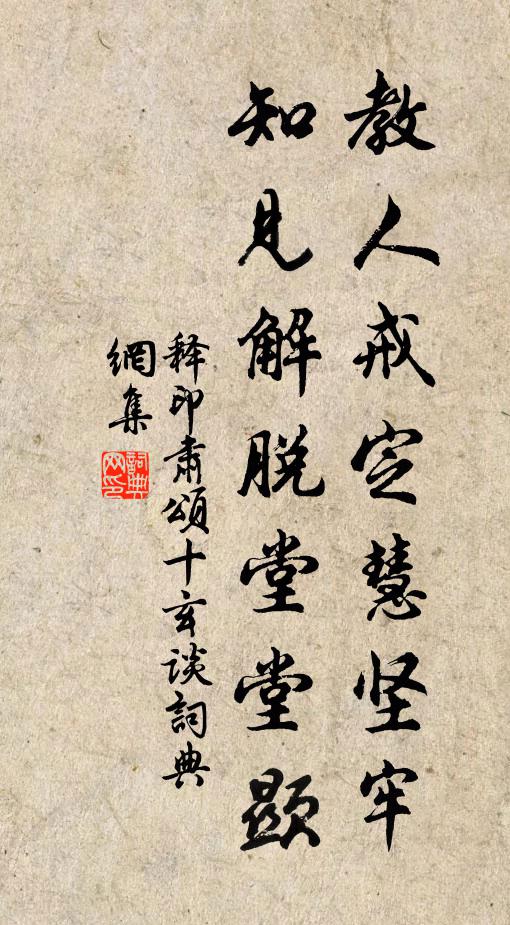 教人戒定慧坚牢
知见解脱堂堂显
释印肃颂十玄谈詞典
網集
詞典网印